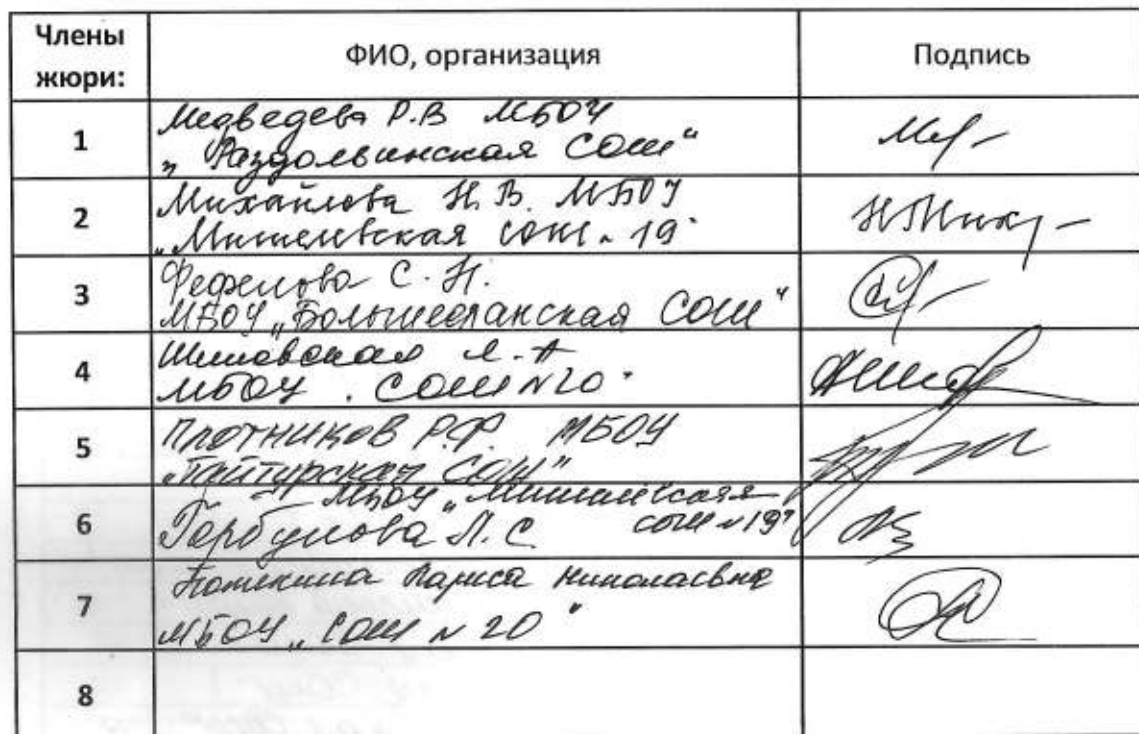 Члены жюри: ФИО, организация Подпись
1 Медведева Р.В МБОУ
„Раздольинская СОШ"
2 Михайлова Н.В. МБОУ
„Мишелевская СОШ №19"
3 Фефелова С.Н.
МБОУ „Большееланская СОШ"
4 Л.А
МБОУ СОШ №20"
5 Плотников Р.Ф. МБОУ
„Тайтурская СОШ"
6 МБОУ „Мишелевская
Горбунова Л.С. СОШ №19"
7 Потекина Лариса Николаевна
МБОУ „СОШ №20"
8